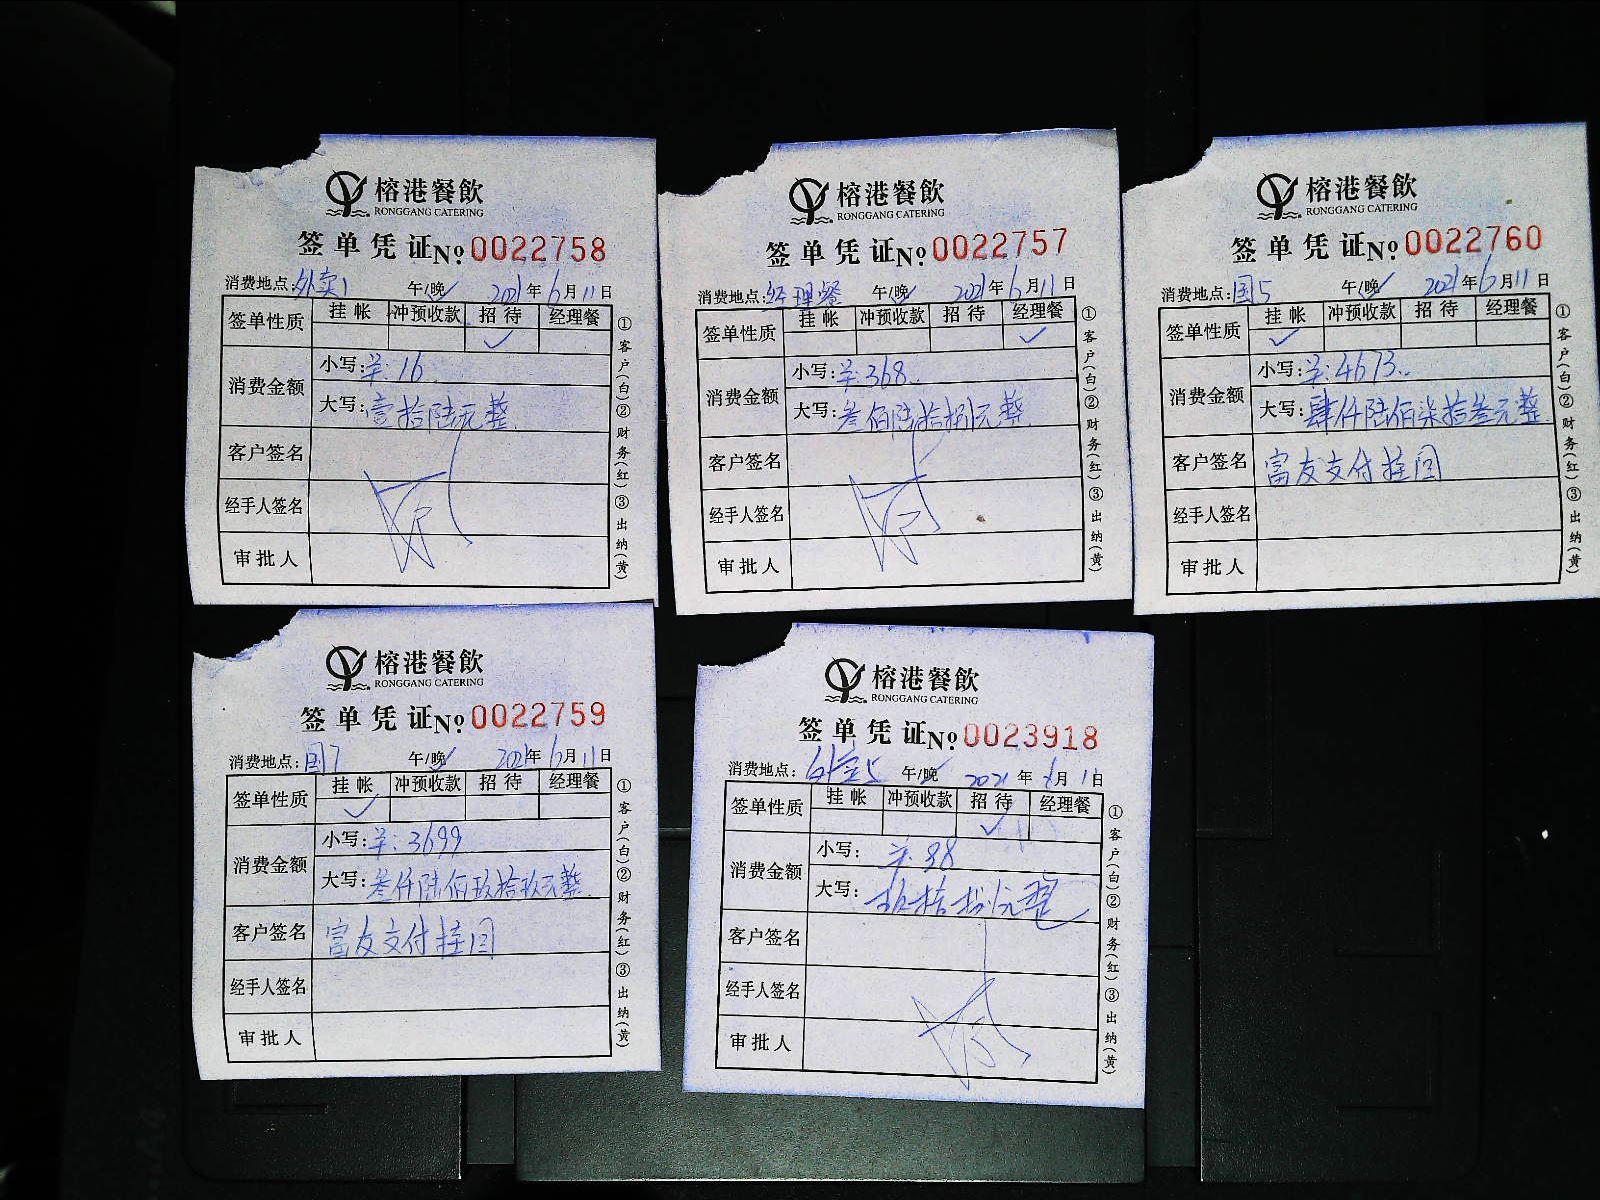 榕港餐飲
RONGGANG CATERING
签单凭证 No 0022758
消费地点: 外卖1 午/晚 2021年6月11日
签单性质 挂帐 冲预收款 招待 经理餐
✓
消费金额 小写: 羊: 16.
大写: 壹拾陆元整
客户签名
经手人签名
审批人
①客户(白)②财务(红)③出纳(黄)
榕港餐飲
RONGGANG CATERING
签单凭证 No 0022757
消费地点: 经理餐 午/晚 2021年6月11日
签单性质 挂帐 冲预收款 招待 经理餐
✓
消费金额 小写: 羊: 368..
大写: 叁佰陆拾捌元整
客户签名
经手人签名
审批人
①客户(白)②财务(红)③出纳(黄)
榕港餐飲
RONGGANG CATERING
签单凭证 No 0022760
消费地点: 国5 午/晚 2021年6月11日
签单性质 挂帐 冲预收款 招待 经理餐
✓
消费金额 小写: 羊: 4673..
大写: 肆仟陆佰柒拾叁元整
客户签名 富友支付挂国
经手人签名
审批人
①客户(白)②财务(红)③出纳(黄)
榕港餐飲
RONGGANG CATERING
签单凭证 No 0022759
消费地点: 国7 午/晚 2021年6月11日
签单性质 挂帐 冲预收款 招待 经理餐
✓
消费金额 小写: 羊: 3699
大写: 叁仟陆佰玖拾玖元整
客户签名 富友支付挂国
经手人签名
审批人
①客户(白)②财务(红)③出纳(黄)
榕港餐飲
RONGGANG CATERING
签单凭证 No 0023918
消费地点: 午/晚 2021年6月11日
签单性质 挂帐 冲预收款 招待 经理餐
✓
消费金额 小写: 羊:
大写: 元整
客户签名
经手人签名
审批人
①客户(白)②财务(红)③出纳(黄)